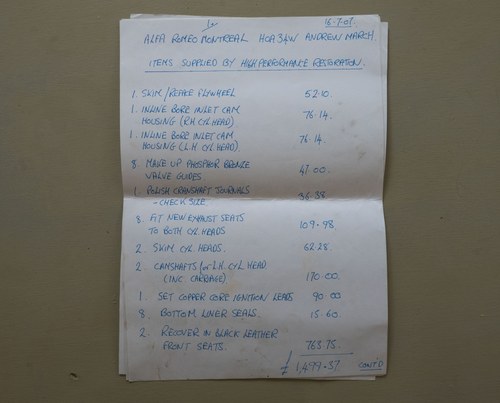 15.7.07.
ALFA ROMEO MONTREAL HOA 34W ANDREW MARCH
ITEMS SUPPLIED BY HIGH PERFORMANCE RESTORATION.
1. SKIM / REFACE FLYWHEEL 52.10.
1. INLINE BORE INLET CAM
HOUSING (R.H CYL HEAD) 76.14.
1. INLINE BORE INLET CAM
HOUSING (L.H CYL HEAD) 76.14.
8 MAKE UP PHOSPHOR BRONZE
VALVE GUIDES. 47.00.
1. POLISH CRANKSHAFT JOURNALS
- CHECK SIZE. 36.38
8. FIT NEW EXHAUST SEATS
TO BOTH CYL HEADS 109.98
2. SKIM CYL HEADS. 62.28.
2. CAMSHAFTS for L.H. CYL HEAD
(INC. CARRIAGE). 170.00.
1. SET COPPER CORE IGNITION LEADS 90.00
8. BOTTOM LINER SEALS. 15.60.
2. RECOVER IN BLACK LEATHER
FRONT SEATS. 763.75.
£ 1,499.37. CONT'D